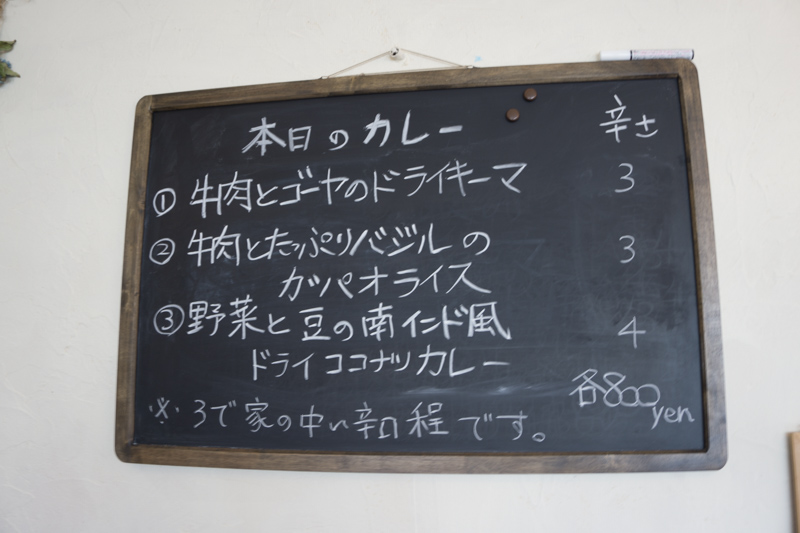 本日のカレー 辛さ
① 牛肉とゴーヤのドライキーマ 3
② 牛肉とたっぷりバジルの 3
ガッパオライス
③ 野菜と豆の南インド風 4
ドライココナッツカレー
各800yen
※ 3で家の中い辛口程です。